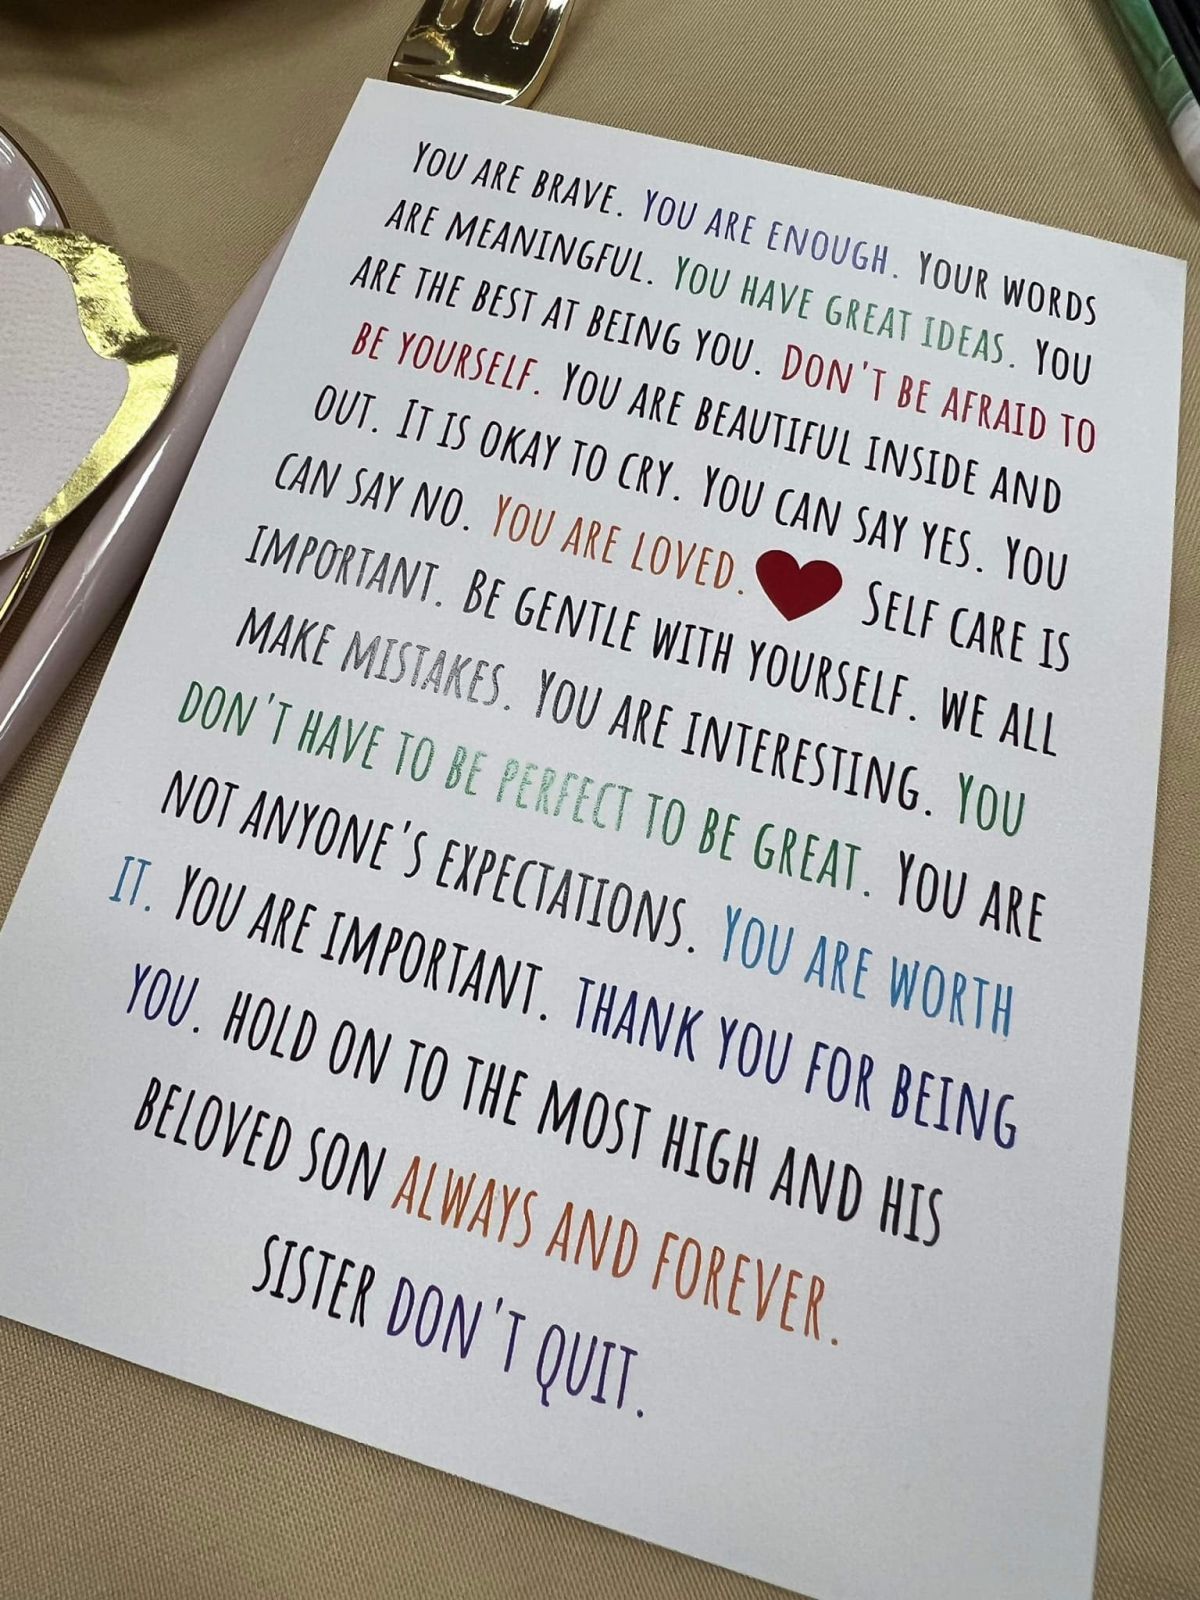 YOU ARE BRAVE. YOU ARE ENOUGH. YOUR WORDS
ARE MEANINGFUL. YOU HAVE GREAT IDEAS. YOU
ARE THE BEST AT BEING YOU. DON'T BE AFRAID TO
BE YOURSELF. YOU ARE BEAUTIFUL INSIDE AND
OUT. IT IS OKAY TO CRY. YOU CAN SAY YES. YOU
CAN SAY NO. YOU ARE LOVED. SELF CARE IS
IMPORTANT. BE GENTLE WITH YOURSELF. WE ALL
MAKE MISTAKES. YOU ARE INTERESTING. YOU
DON'T HAVE TO BE PERFECT TO BE GREAT. YOU ARE
NOT ANYONE'S EXPECTATIONS. YOU ARE WORTH
IT. YOU ARE IMPORTANT. THANK YOU FOR BEING
YOU. HOLD ON TO THE MOST HIGH AND HIS
BELOVED SON ALWAYS AND FOREVER.
SISTER DON'T QUIT.